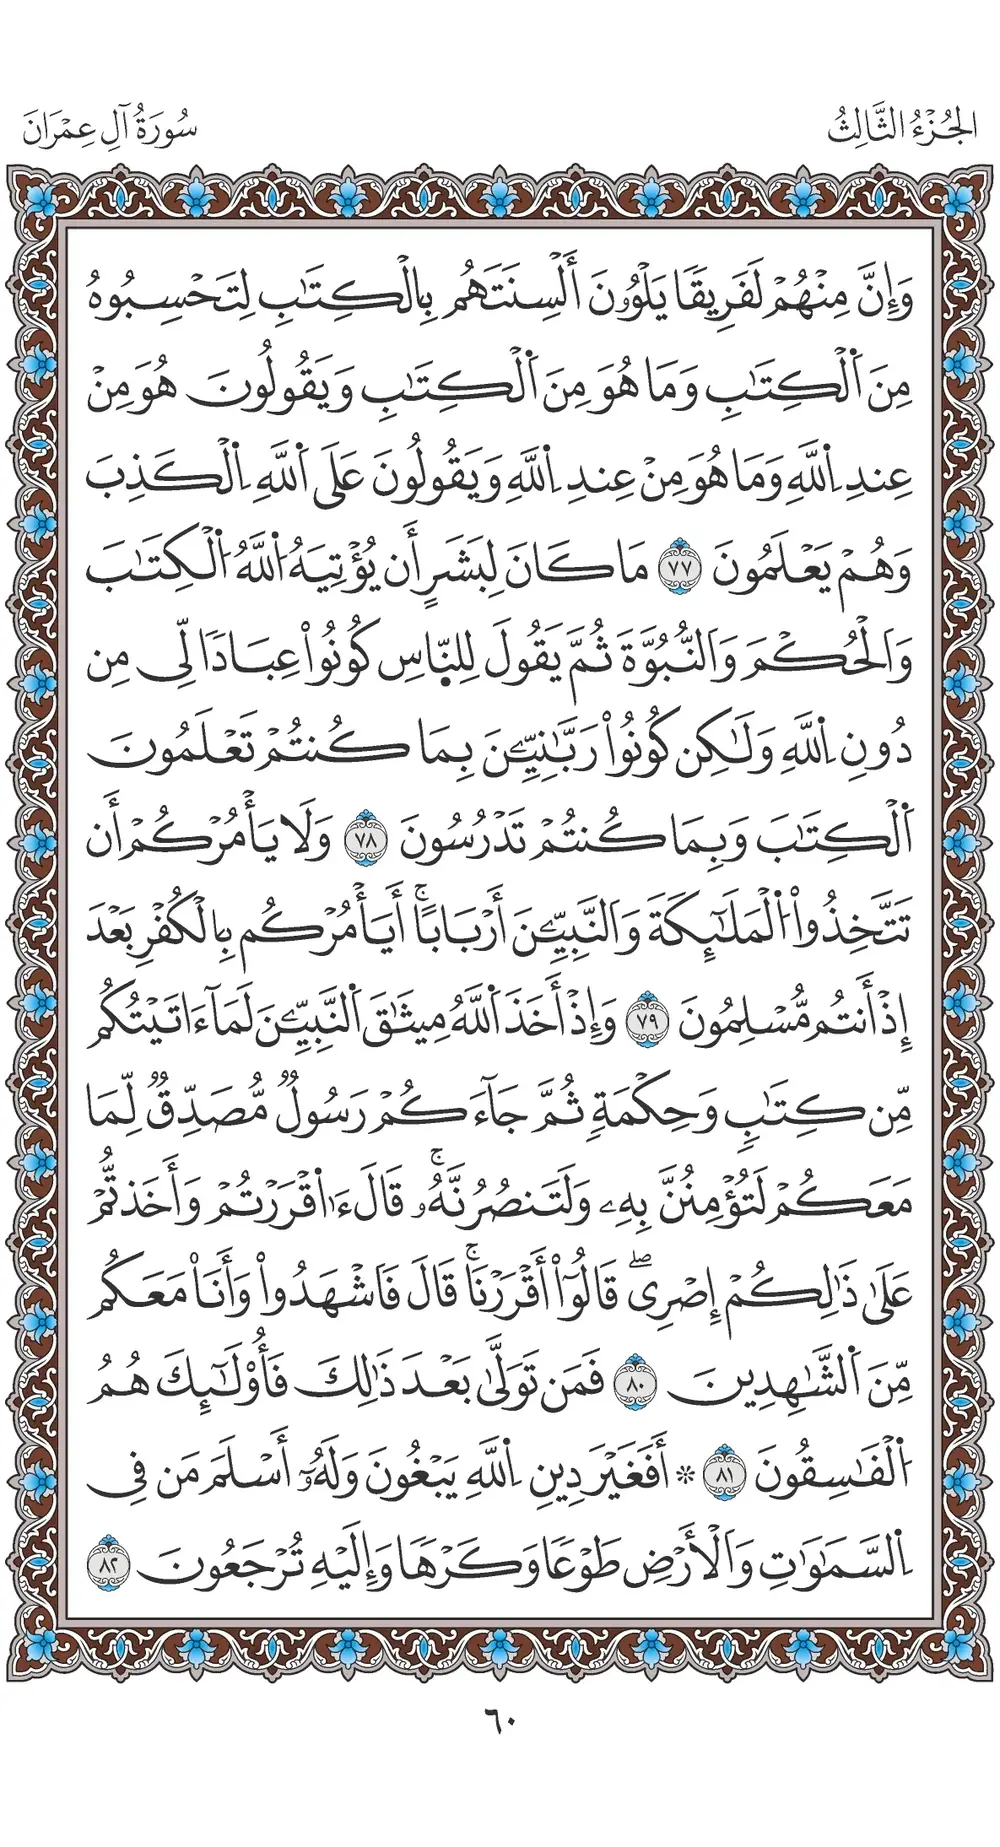 الجُزْءُ الثَّالِثُ
سُورَةُ آلِ عِمْرَانَ
وَإِنَّ مِنْهُمْ لَفَرِيقًا يَلْوُۥنَ أَلْسِنَتَهُم بِالْكِتَٰبِ لِتَحْسِبُوهُ
مِنَ اَلْكِتَٰبِ وَمَا هُوَ مِنَ اَلْكِتَٰبِ وَيَقُولُونَ هُوَ مِنْ
عِندِ اِللَّهِ وَمَا هُوَ مِنْ عِندِ اِللَّهِ وَيَقُولُونَ عَلَى اَللَّهِ اِلْكَذِبَ
وَهُمْ يَعْلَمُونَ ٧٧ مَا كَانَ لِبَشَرٍ أَن يُؤْتِيَهُ اُللَّهُ اُلْكِتَٰبَ
وَالْحُكْمَ وَالنُّبُوَّةَ ثُمَّ يَقُولَ لِلنَّاسِ كُونُواْ عِبَادًا لِّى مِن
دُونِ اِللَّهِ وَلَٰكِن كُونُواْ رَبَّٰنِيِّۦنَ بِمَا كُنتُمْ تَعْلَمُونَ
اَلْكِتَٰبَ وَبِمَا كُنتُمْ تَدْرُسُونَ ٧٨ وَلَا يَأْمُرْكُمْ أَن
تَتَّخِذُواْ اُلْمَلَٰٓئِكَةَ وَالنَّبِيِّۦنَ أَرْبَابًاۚ أَيَأْمُرْكُم بِالْكُفْرِ بَعْدَ
إِذْ أَنتُم مُّسْلِمُونَ ٧٩ وَإِذْ أَخَذَ اَللَّهُ مِيثَٰقَ اَلنَّبِيِّۦنَ لَمَا ءَاتَيْتُكُم
مِّن كِتَٰبٍ وَحِكْمَةٍ ثُمَّ جَآءَكُمْ رَسُولٌ مُّصَدِّقٌ لِّمَا
مَعَكُمْ لَتُؤْمِنُنَّ بِهِۦ وَلَتَنصُرُنَّهُۥۚ قَالَ ءَاَقْرَرْتُمْ وَأَخَذتُّمْ
عَلَىٰ ذَٰلِكُمْ إِصْرِىۖ قَالُوٓاْ أَقْرَرْنَاۚ قَالَ فَاشْهَدُواْ وَأَنَا۠ مَعَكُم
مِّنَ اَلشَّٰهِدِينَ ٨٠ فَمَن تَوَلَّىٰ بَعْدَ ذَٰلِكَ فَأُوْلَٰٓئِكَ هُمُ
اُلْفَٰسِقُونَ ٨١ * أَفَغَيْرَ دِينِ اِللَّهِ يَبْغُونَ وَلَهُۥٓ أَسْلَمَ مَن فِى
اِلسَّمَٰوَٰتِ وَالْأَرْضِ طَوْعًا وَكَرْهًا وَإِلَيْهِ تُرْجَعُونَ ٨٢
٦٠